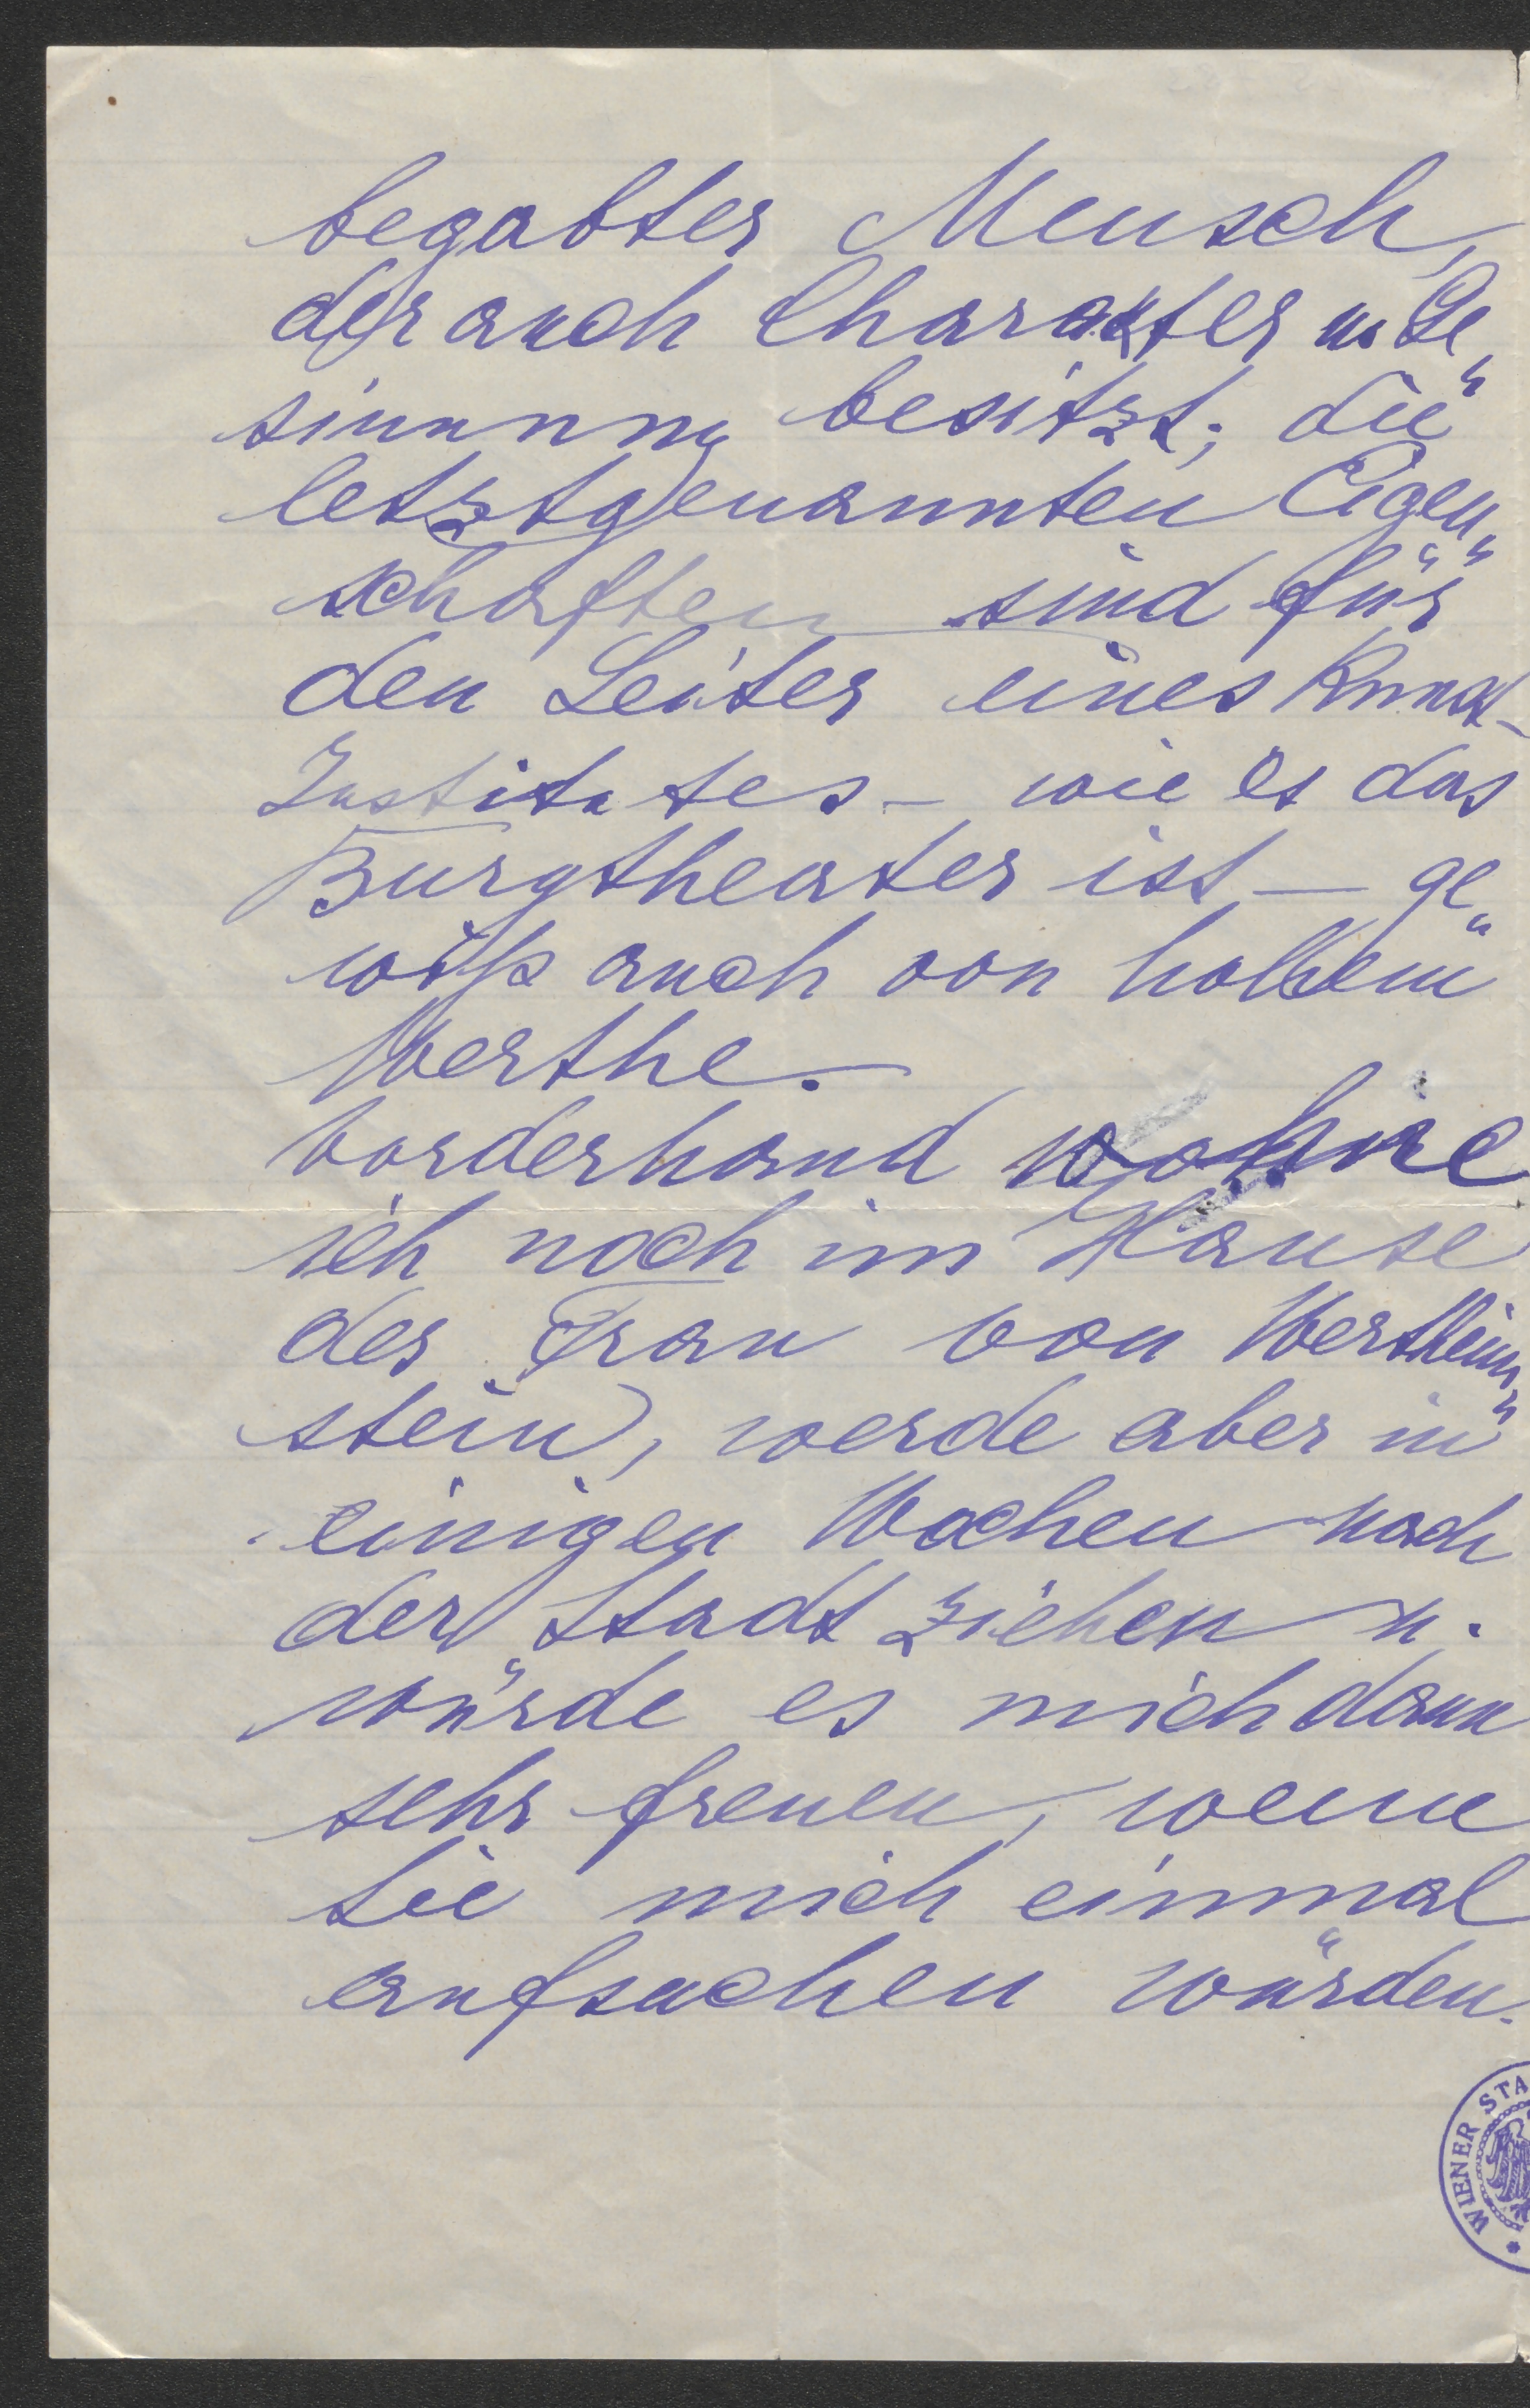 begabter Mensch,
der auch Charakter u. Ge„
sinnung besitzt; die
letztgenannten Eigen„
schaften sind für
den Leiter eines Kunst-
Institutes – wie es das
Burgtheater ist – ge„
wiß auch von hohem
Werthe.
Vorderhand wohne
ich noch im Hause
der Frau von Wertheim„
stein, werde aber in
einigen Wochen nach
der Stadt ziehen u.
würde es mich dann
sehr freuen, wenn
Sie mich einmal
aufsuchen würden.
WIENER STA